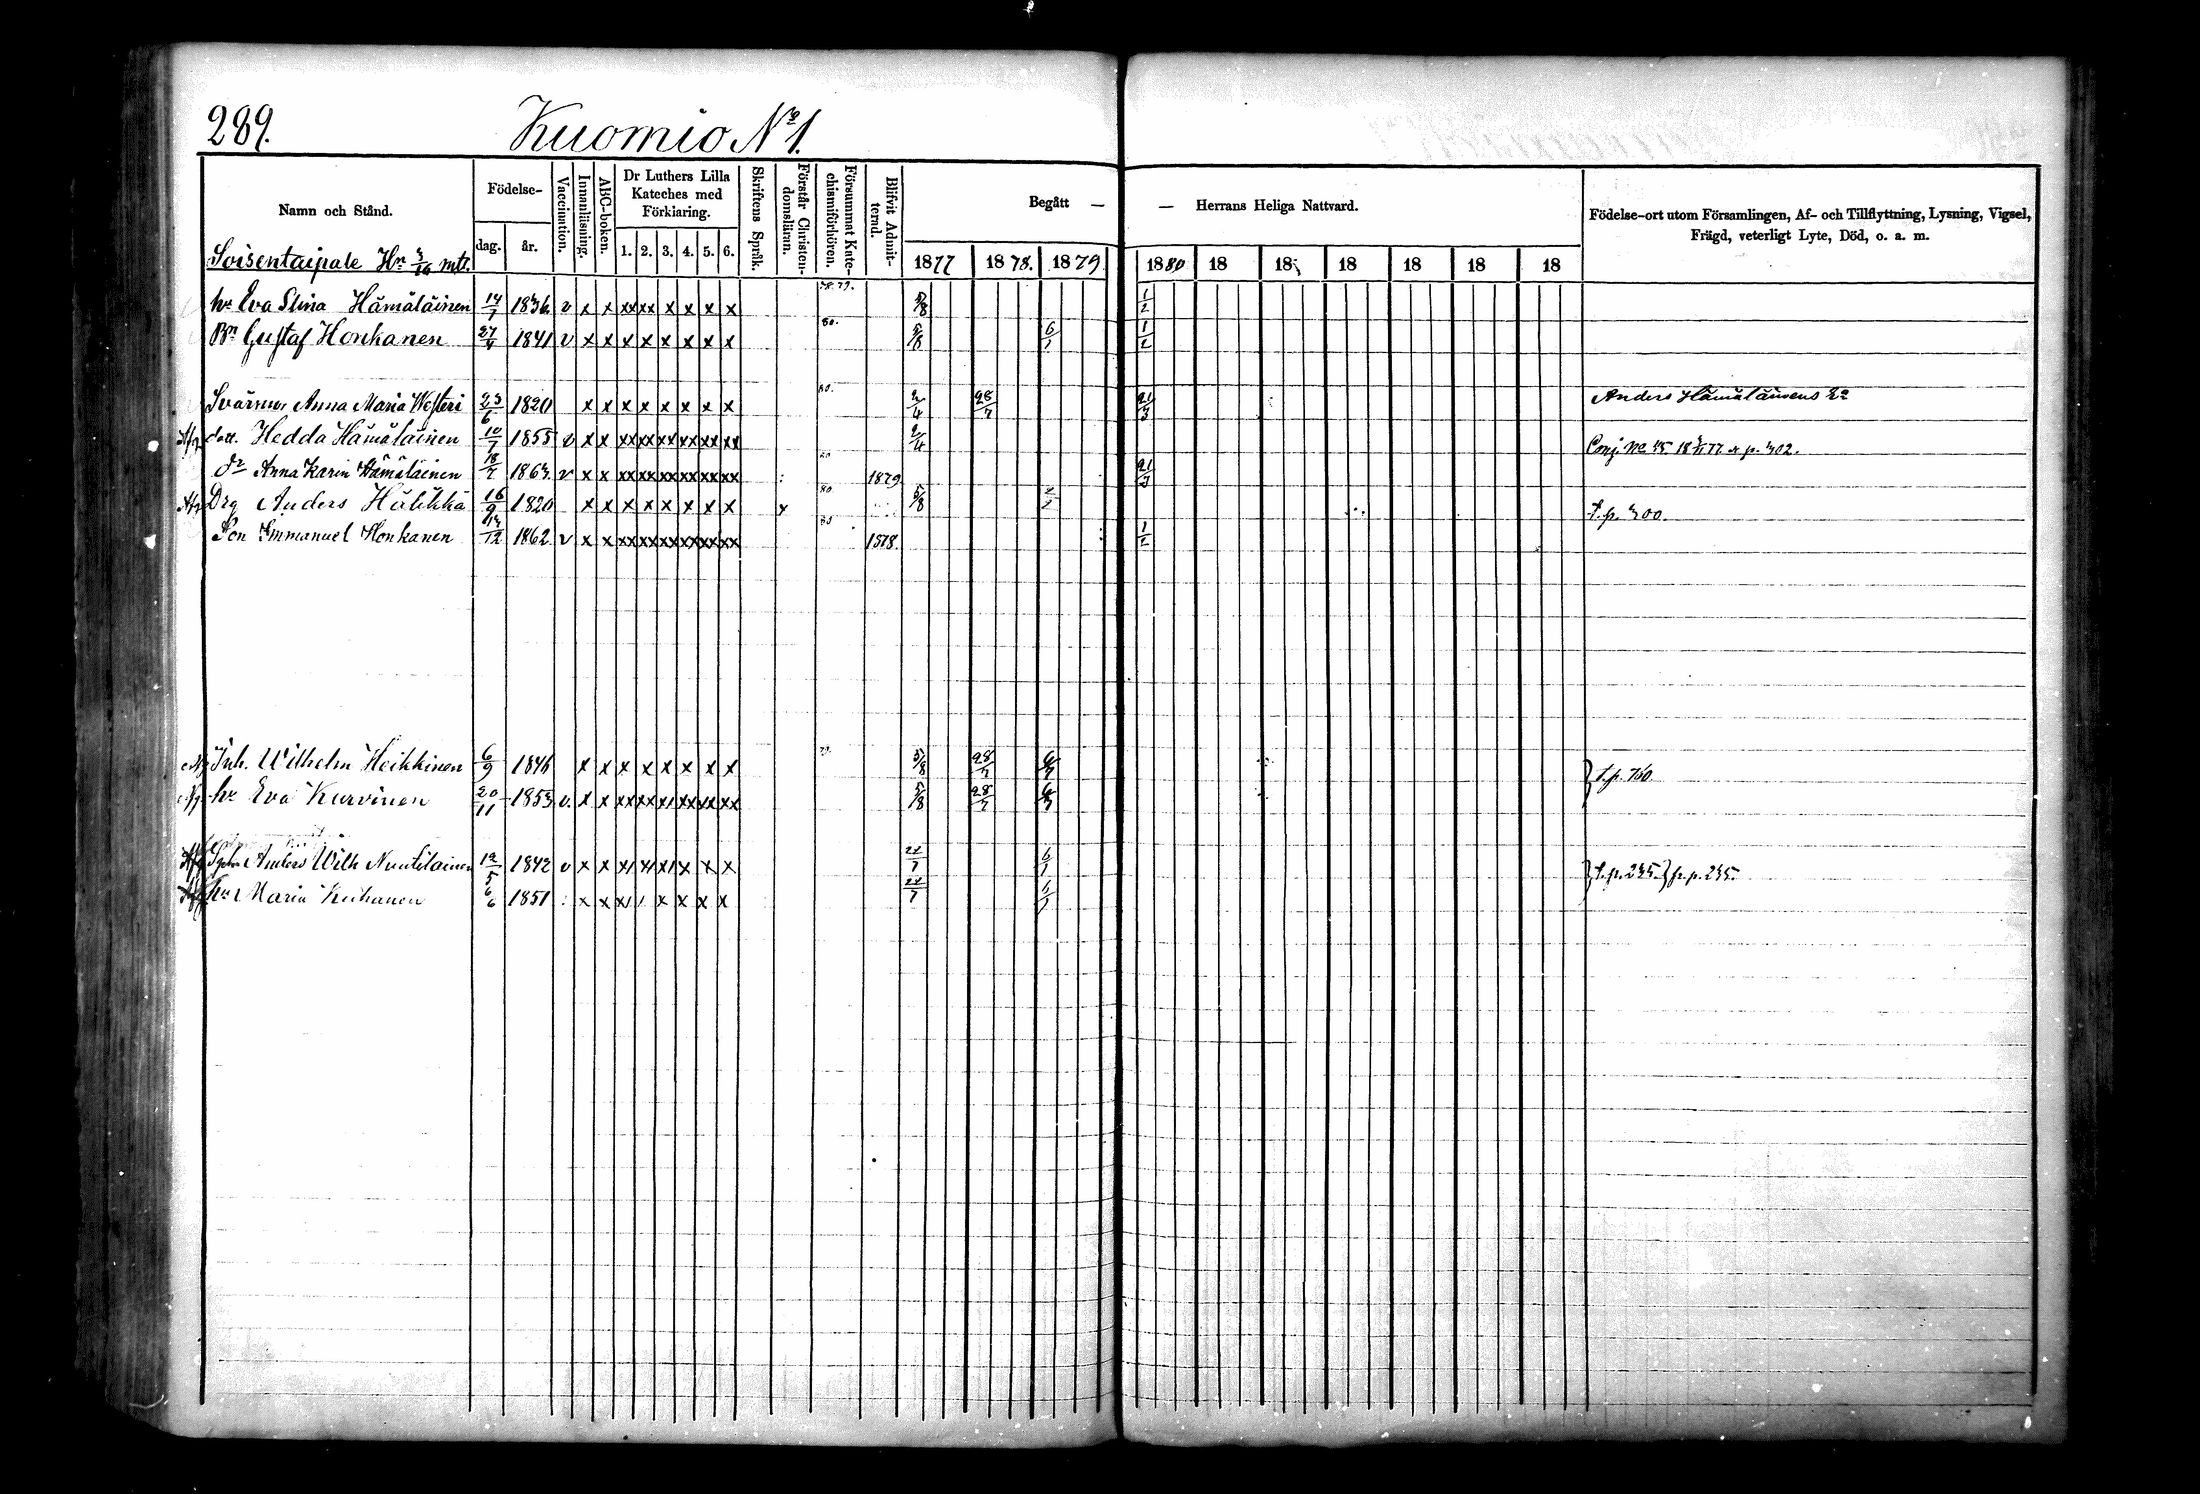 289.
Kuomio No 1.
Namn och Stånd.
Födelse-
dag.
år.
Vaccination.
Innanläsning.
ABC-boken.
Dr Luthers Lilla Kateches med Förklaring.
1. 2. 3. 4. 5. 6.
Skriftens Språk.
Förstår Christendomsläran.
Försummat Katechismiförhören.
Blifvit Admitterad.
Begått — — Herrans Heliga Nattvard.
1877 1878. 1879. 1880 18 18 18 18 18 18
Födelse-ort utom Församlingen, Af- och Tillflyttning, Lysning, Vigsel, Frägd, veterligt Lyte, Död, o. a. m.
Soisentaipale Hn 3/16 mtl.
hu Eva Stina Hämäläinen 14/7 1836. v x x xx xx x x x x 78.79. 5/8 1/2
Bn Gustaf Honkanen 27/4 1841 v x x x x x x x x 80. 5/8 6/7 1/2
Svärmor Anna Maria Westeri 23/6 1820 x x x x x x x x 80. 2/4 28/7 21/3 Anders Hämäläinens Ea
Afg dott. Hedda Hämäläinen 10/7 1855 v x x xx xx xx xx xx xx 2/4 Conj. No 45 18 77 & p. 302.
do Anna Karin Hämäläinen 18/7 1863. v x x xx xx xx xx xx xx 80 1879 21/3
Afg Drg Anders Hälikkä 16/9 1820 x x x x x x x x x 80 5/8 t. p. 300.
Son Immanuel Honkanen 12 1862. v x x xx xx xx xx xx xx 80 1878. 1/2
Afg Inh. Wilhelm Heikkinen 6/9 1846 x x x x x x x x 79. 5/8 28/7 6/7 } t. p. 760.
Afg hu Eva Kurvinen 20/11 1853 v. x x xx xx xx xx xx xx 5/8 28/7 6/7
Anders Wilh Nuutilainen 12/5 1842 v x x x x x x x x 22/7 6/7 } t. p. 235. } fr. p. 235.
hu Maria Keihanen 6/6 1851 x x x x x x x 22/7 6/7